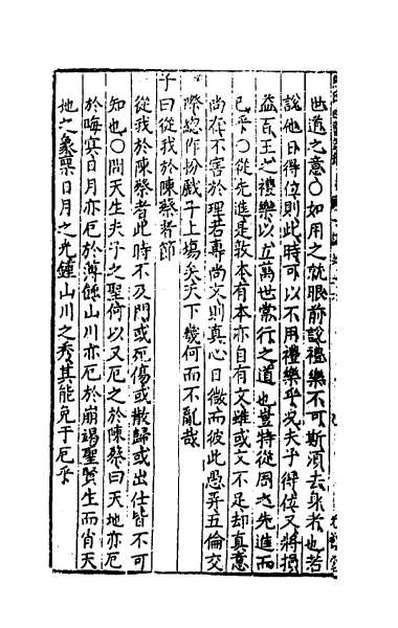 世道之意○如用之就眼前說禮樂不可斯須去身者也若
說他日得位則此時可以不用禮樂乎況夫子得位又將損
益百王之禮樂以立萬世常行之道也豈特從周之先進而
已乎○從先進是敦本有本亦自有文雖或文不足却真意
尚在不害於理若專尚文則真心日微而彼此愚弄五倫交
際總作扮戲子上場矣天下幾何而不亂哉
子曰從我於陳蔡者節
從我於陳蔡者此時不及門或死傷或散歸或出仕皆不可
知也○問天生夫子之聖何以又厄之於陳蔡曰天地亦厄
於晦冥日月亦厄於薄蝕山川亦厄於崩竭聖賢生而肖天
地之象稟日月之光鍾山川之秀其能免于厄乎